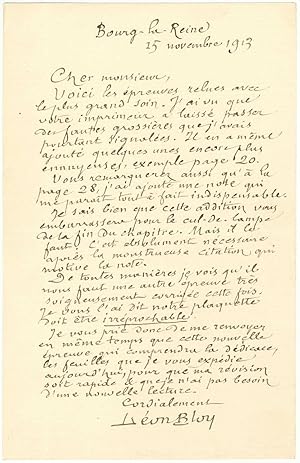 Bourg-la-Reine
15 novembre 1913
Cher monsieur,
Voici les épreuves relues avec
le plus grand soin. J'ai vu que
votre imprimeur a laissé passer
des fautes grossières que j'avais
pourtant signalées. Il en a même
ajouté quelques unes encore plus
ennuyeuses, exemple page 20.
Vous remarquerez aussi qu'à la
page 28, j'ai ajouté une note qui
me paraît tout à fait indispensable.
Je sais bien que cette addition vous
embarrassera pour le cul-de-lampe
de la fin du chapitre. Mais il le
faut. C'est absolument nécessaire
après la monstrueuse citation qui
motive la note.
De toutes manières je vois qu'il
nous faut une autre épreuve très
soigneusement corrigée cette fois.
Je vous l'ai dit notre plaquette
doit être irréprochable.
Je vous prie donc de me renvoyer
en même temps que cette nouvelle
épreuve qui comprendra la dédicace,
les feuilles que je vous expédie
aujourd'hui, pour que ma révision
soit rapide & que je n'ai pas besoin
d'une nouvelle lecture.
Cordialement
Léon Bloy